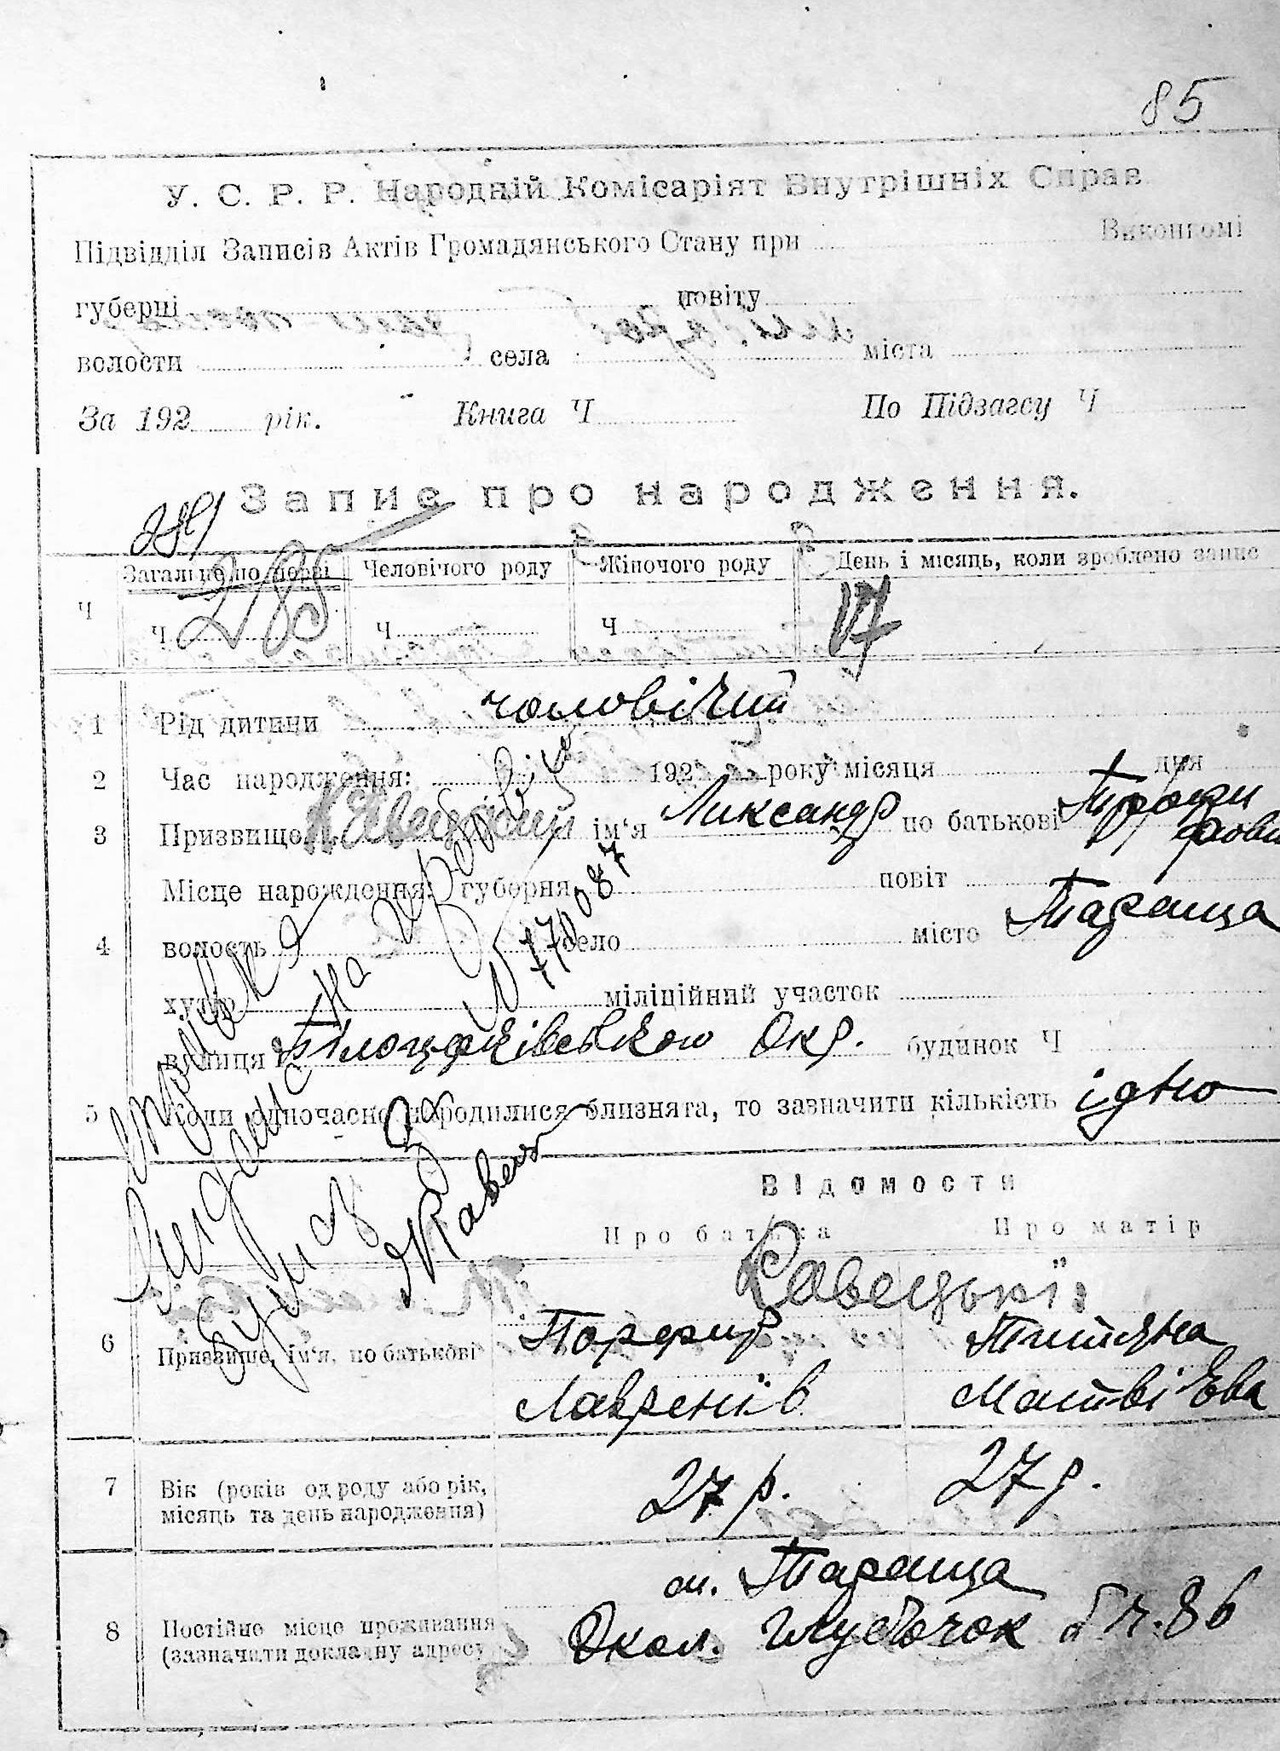 85
У. С. Р. Р. Народній Комісаріят Внутрішніх Справ
Підвідділ Записів Актів Громадянського Стану при Виконкомі
губерні повіту
волости села міста
За 192 рік. Книга Ч По Підзагсу Ч
Запис про народження.
Загальне по порві Человічого роду Жіночого роду День і місяць, коли зроблено запис
Ч Ч 285 Ч Ч 17
1 Рід дитини чоловічий
2 Час народження: 192 року місяця дня
3 Призвище Кавецкий ім'я Александр по батькові
Місце народження: губерня повіт
4 волость село місто Тараща
хутір міліційний участок
вулиця Білоцерківською Окр. будинок Ч
5 Коли одночасно народилися близнята, то зазначити кількістьідно
Відомости
Про батька Про матір
Равецькі:
6 Призвище, ім'я, по батькові Порфир Титяна
Лавренів Матвієва
7 Вік (років од роду або рік, місяць та день народження) 27 р. 27 р.
м. Тараща
8 Постійне місце проживання Окол. Глубочок б ч. 86
(зазначати докладну адресу